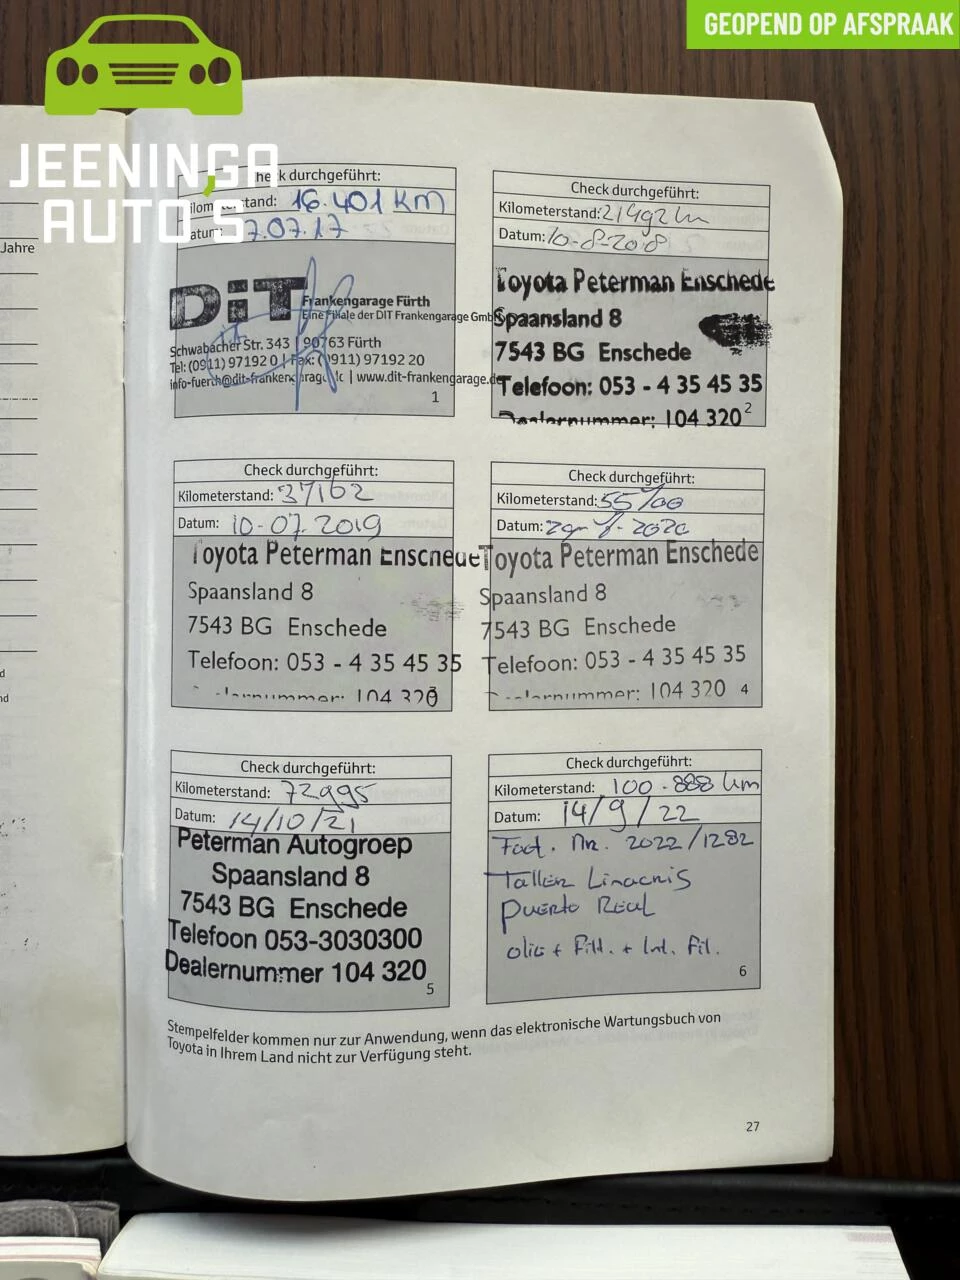 GEOPEND OP AFSPRAAK
JEENINGA
AUTO'S
Jahre
Check durchgeführt:
Kilometerstand: 16.401 KM
Datum: 7.07.17
DiT
Frankengarage Fürth
Eine Filiale der DIT Frankengarage GmbH
Schwabacher Str. 343 | 90763 Fürth
Tel: (0911) 97192 0 | Fax: (0911) 97192 20
www.dit-frankengarage.de
1
Check durchgeführt:
Kilometerstand: 21492 km
Datum: 10-8-2018
Toyota Peterman Enschede
Spaansland 8
7543 BG Enschede
Telefoon: 053 - 4 35 45 35
Dealernummer: 104 320
2
Check durchgeführt:
Kilometerstand: 37162
Datum: 10-07-2019
Toyota Peterman Enschede
Spaansland 8
7543 BG Enschede
Telefoon: 053 - 4 35 45 35
Dealernummer: 104 320
Check durchgeführt:
Kilometerstand:
Datum:
Toyota Peterman Enschede
Spaansland 8
7543 BG Enschede
Telefoon: 053 - 4 35 45 35
Dealernummer: 104 320
4
Check durchgeführt:
Kilometerstand: 72995
Datum: 14/10/21
Peterman Autogroep
Spaansland 8
7543 BG Enschede
Telefoon 053-3030300
Dealernummer 104 320
5
Check durchgeführt:
Kilometerstand: 100.888 km
Datum: 14/9/22
Fact. Nr. 2022/1282
Taller Linacris
Puerto Real
olie + Filt. + Int. Fil.
6
Stempelfelder kommen nur zur Anwendung, wenn das elektronische Wartungsbuch von
Toyota in Ihrem Land nicht zur Verfügung steht.
27